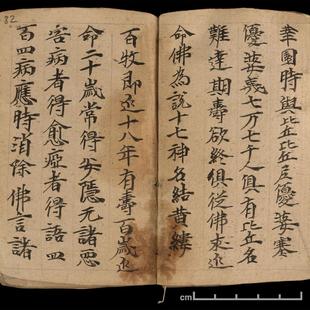 82
華園時與比丘比丘尼優婆塞
優婆義七万七千人俱有比丘名
難達期壽欲終俱從佛求
命佛為說十七神名結黃縷
百牧即 十八年有壽百歲
命二十歲常得安隱元諸惡
害病者得愈瘂者得語四
百四病應時消除佛言諸
cm